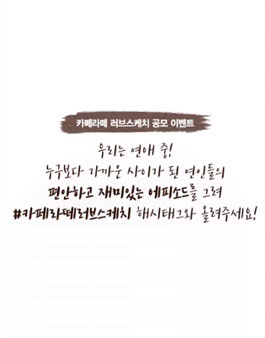 카페라떼 러브스케치 공모 이벤트
우리는 연애 중!
누구보다 가까운 사이가 된 연인들의
편안하고 재미있는 에피소드를 그려
#카페라떼러브스케치 해시태그와 올려주세요!